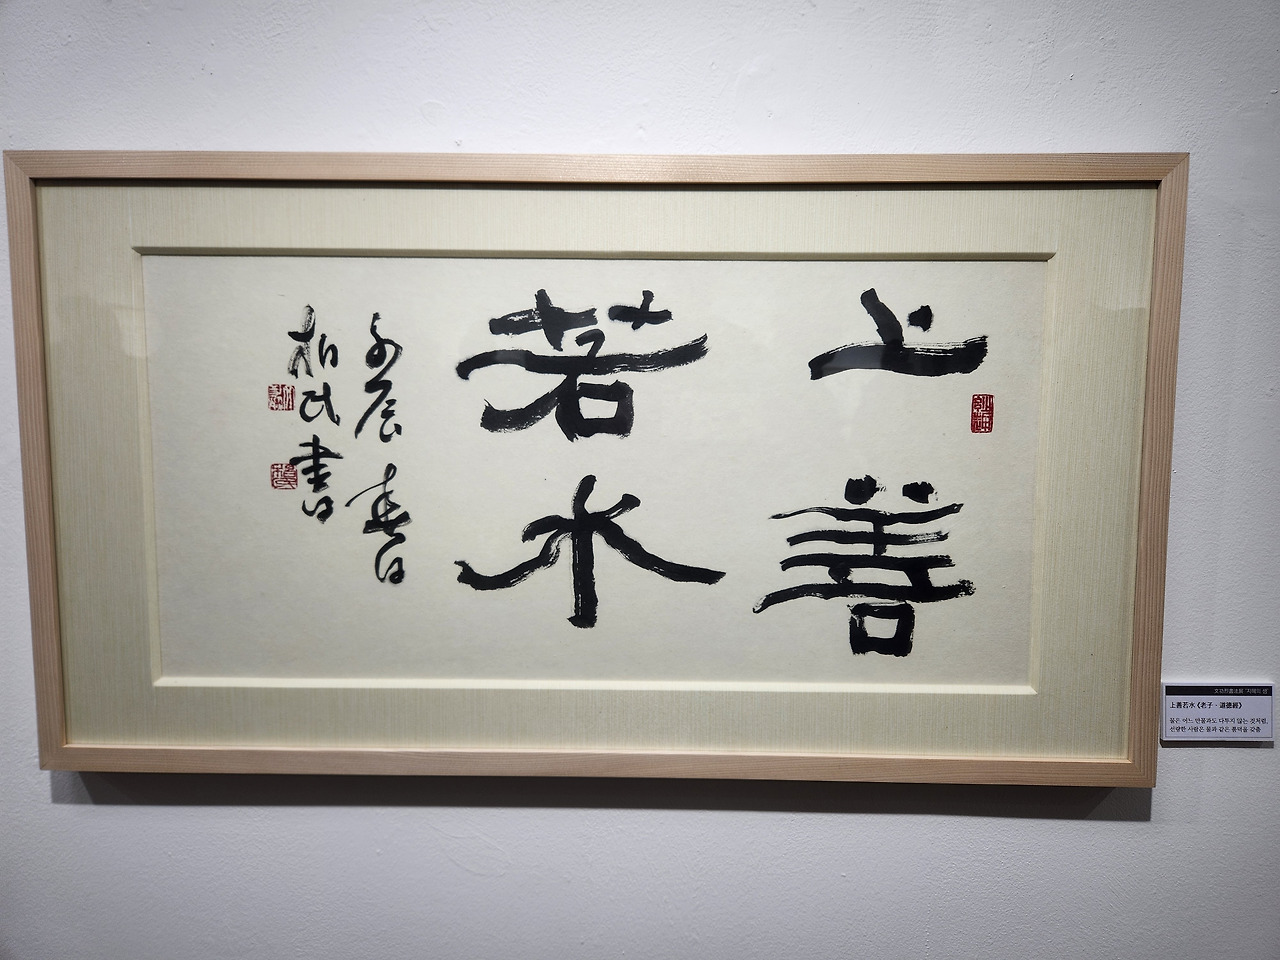 上善
若水
甲辰春日
柏民書
文功烈書法展 "지혜의 샘"
上善若水《老子·道德經》
물은 어느 만물과도 다투지 않는 것처럼,
선량한 사람은 물과 같은 품덕을 갖춤